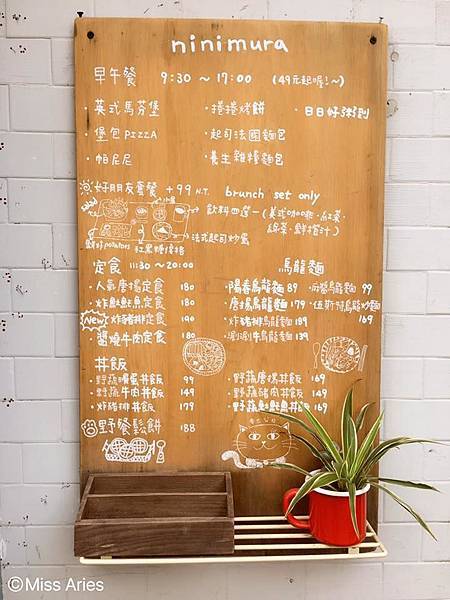 ninimura
早午餐 9:30 ~ 17:00 (49元起喔!~)
・英式馬芬堡 ・捲捲烤餅 ・日日好粥到
・堡包PIZZA ・起司法國麵包
・帕尼尼 ・養生雜糧麵包
好朋友套餐 +99 N.T. brunch set only
飲料四選一(美式咖啡、紅茶、
綠茶、鮮橙汁)
法式起司炒蛋
鮮好potatoes 紅黑糖捲捲
定食 11:30~20:00 烏龍麵
・人氣唐揚定食 180 ・陽春烏龍麵 89 ・麻醬烏龍麵 99
・炸魷魷魚定食 180 ・唐揚烏龍麵 179 ・伍斯特烏龍炒麵 169
New 炸豬排定食 190 ・炸豬排烏龍麵 189
醬燒牛肉定食 180 ・涮涮牛烏龍麵 139
丼飯
・野蔬嫩蛋丼飯 99 ・野蔬唐揚丼飯 169
・野蔬牛肉丼飯 149 ・野蔬豬肉丼飯 149
・炸豬排丼飯 179 ・野蔬魷魷魚丼飯 169
野餐鬆餅 188
©Miss Aries